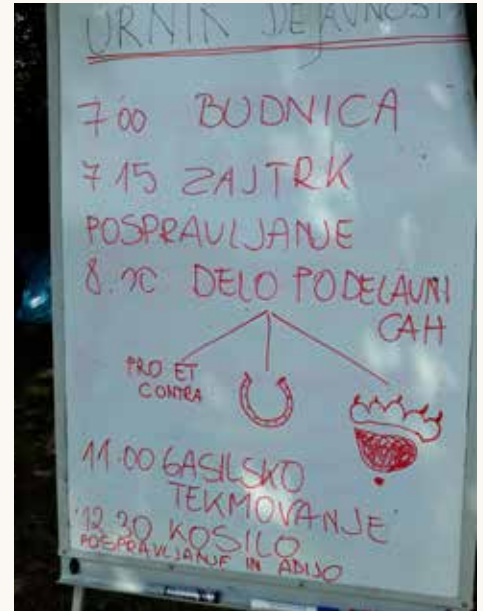 URNIK DEJAVNOSTI
7 00 BUDNICA
7 15 ZAJTRK
POSPRAVLJANJE
8. DELO PO DELAVNI
CAH
PRO ET
CONTRA
11.00 GASILSKO
TEKMOVANJE
12.30 KOSILO
POSPRAVLJANJE IN ADIJO